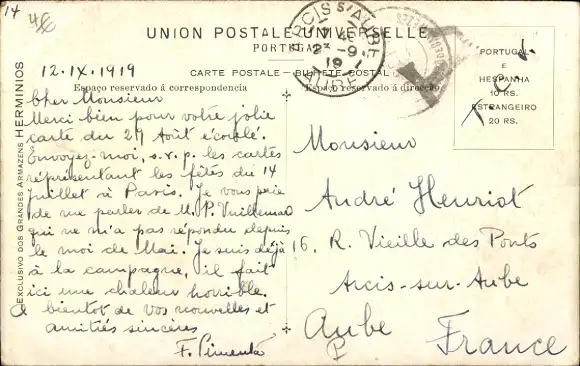 14
4€
UNION POSTALE UNIVERSELLE
PORTUGAL
CARTE POSTALE — BILHETE POSTAL
Espaço reservado á correspondencia
Espaço reservado á direcção
ARCIS S/ AUBE
23 -9
19
AUBE
T
PORTUGAL
E
HESPANHA
10 RS.
ESTRANGEIRO
20 RS.
EXCLUSIVO DOS GRANDES ARMAZENS HERMINIOS
12.IX.1919
Cher Monsieur
Merci bien pour votre jolie
carte du 29 Août écoulé.
Envoyez-moi, s.v.p. les cartes
représentant les fêtes du 14
Juillet à Paris. Je vous prie
de me parler de M. P. Vuillemad
qui ne m'a pas répondu depuis
le moi de Mai. Je suis déjà
à la campagne, il fait
ici une chaleur horrible.
A bientot de vos nouvelles et
amitiés sincères
F. Pimenta
Monsieur
André Henriot
16, R. Vieille des Ponts
Arcis-sur-Aube
Aube
France